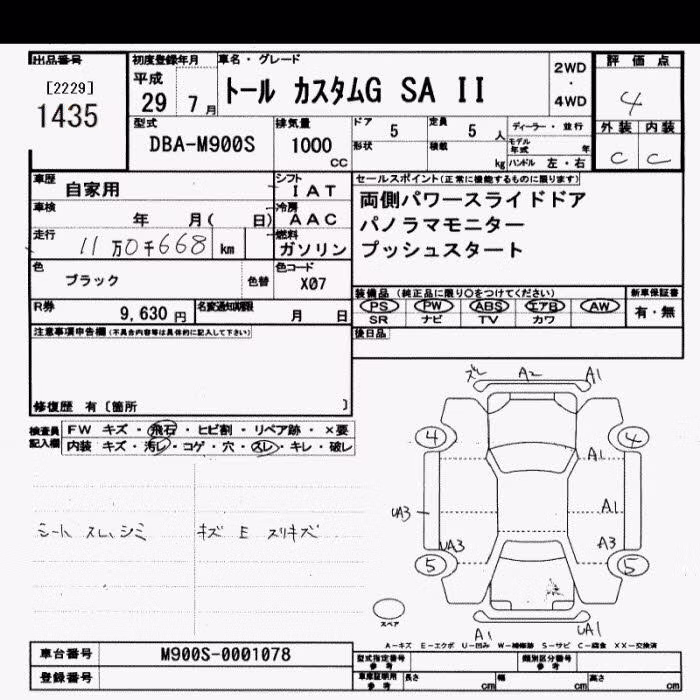 出品番号
[2229]
1435
初度登録年月
平成
29 7月
車名・グレード
トール カスタムG SA II
2WD
・
4WD
評価点
4
外装 内装
C C
型式
DBA-M900S
排気量
1000
CC
ドア 5
定員 5人
形状
積載 kg
ディーラー・並行
モデル年式 年
ハンドル 左・右
車歴
自家用
シフト
IAT
車検
年 月( 日)
冷房
AAC
走行
11万0千668 km
燃料
ガソリン
色
ブラック
色替
色コード
X07
セールスポイント(正常に機能するものに限ります)
両側パワースライドドア
パノラマモニター
プッシュスタート
R券
9,630円
名変通知期限
月 日
装備品(純正品に限り○をつけてください)
PS PW ABS エアB AW
SR ナビ TV カワ
新車保証書
有・無
後日品
注意事項申告欄(不具合内容等は具体的に記入して下さい)
修復歴 有〔箇所 〕
検査員
記入欄
FW キズ・飛石・ヒビ割・リペア跡・×要
内装 キズ・汚レ・コゲ・穴・スレ・キレ・破レ
シート スレ、シミ
キズ E スリキズ
A2 A1
4 4
A1
UA3 A1
UA3 A3
5 5
A1 UA1
スペア
A－キズ E－エクボ U－凹み W－補修跡 S－サビ C－腐食 XX－交換済
車台番号
M900S-0001078
登録番号
型式指定番号
参考
類別区分番号
参考
車庫証明用
参考
長さ cm
幅 cm
高さ cm